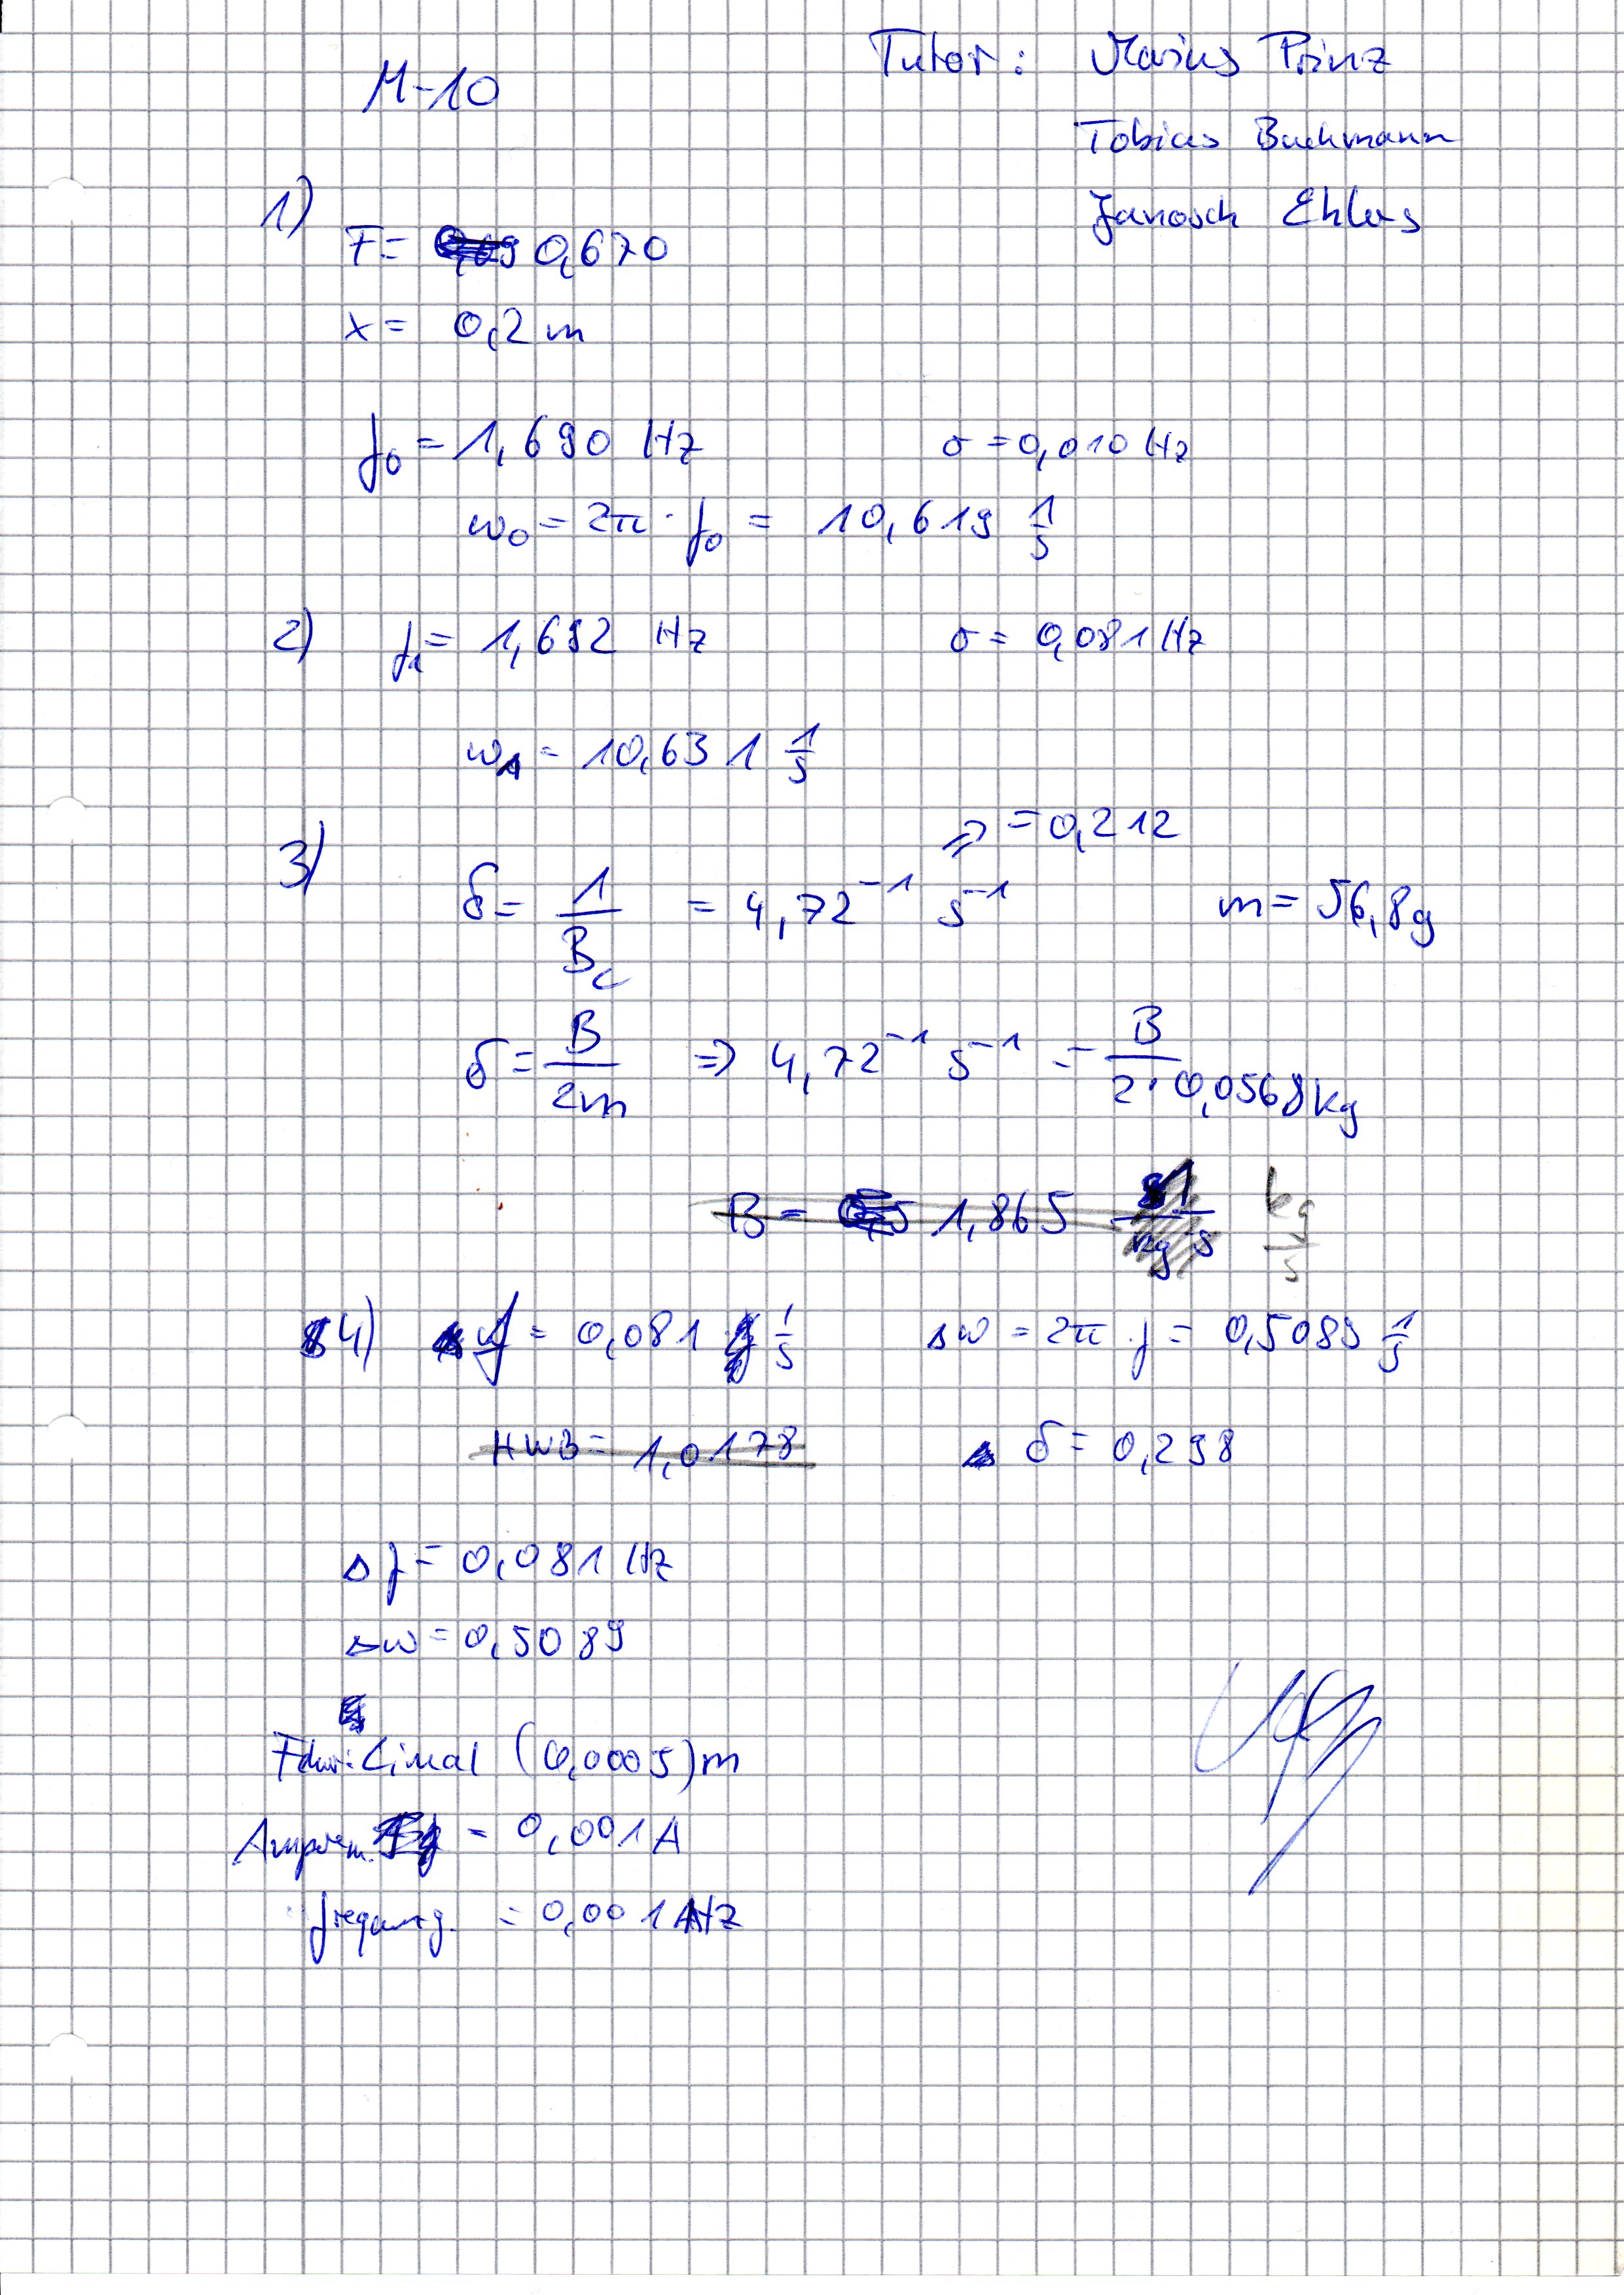 M-10
Tutor: Marius Prinz
Tobias Buchmann
Janosch Ehlers
1)
F= 0,670
x= 0,2 m
f₀ = 1,690 Hz σ = 0,010 Hz
w₀ = 2π · f₀ = 10,619 1/s
2) f₁ = 1,692 Hz σ = 0,081 Hz
w₁ = 10,631 1/s
⇒ = 0,212
3) δ = 1/B_c = 4,72⁻¹ s⁻¹ m = 56,8g
δ = B/2m ⇒ 4,72⁻¹ s⁻¹ = B/2·0,0568kg
B = 1,865 kg/s
4) f = 0,081 1/s Δw = 2π · f = 0,5089 1/s
HWB = 1,0178 δ = 0,298
Δf = 0,081 Hz
Δw = 0,5089
Lineal (0,0005)m
Amperem. = 0,001 A
= 0,001 Hz